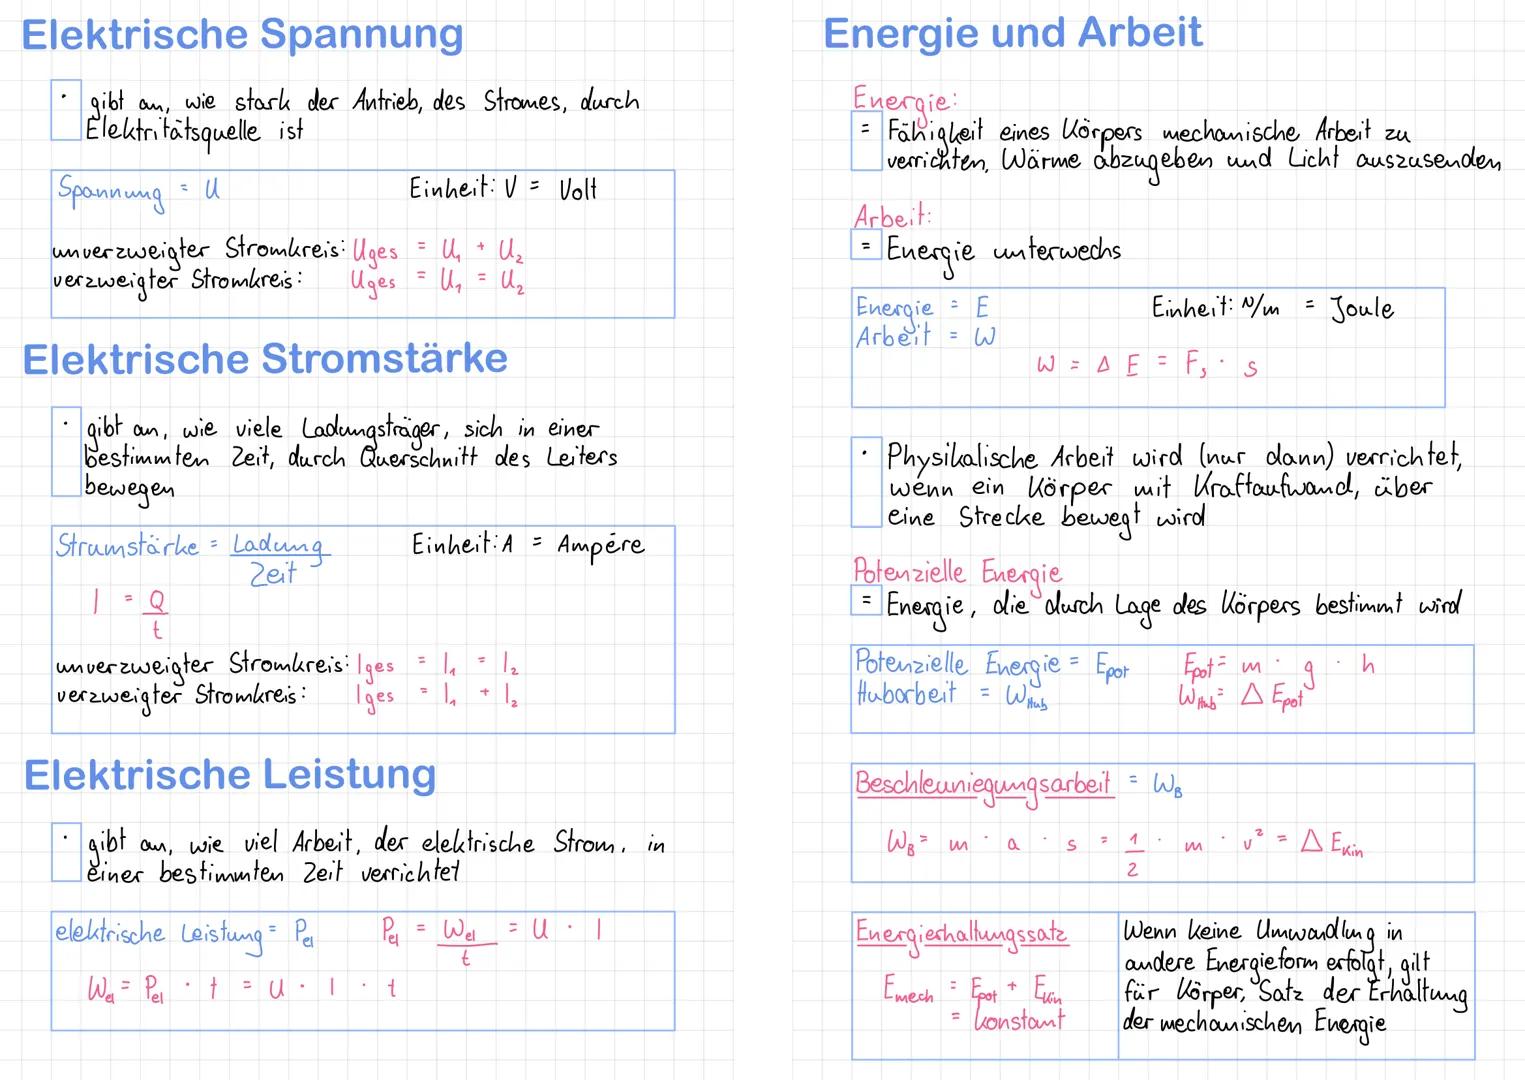 Elektrische Spannung
· gibt an, wie stark der Antrieb, des Stromes, durch
Elektritätsquelle ist
Spannung = U Einheit: V = Volt
unverzweigter Stromkreis: Uges = U₁ + U₂
verzweigter Stromkreis: Uges = U₁ = U₂
Elektrische Stromstärke
· gibt an, wie viele Ladungsträger, sich in einer
bestimmten Zeit, durch Querschnitt des Leiters
bewegen
Strumstärke = Ladung Einheit: A = Ampére
Zeit
I = Q
t
unverzweigter Stromkreis: Iges = I₁ = I₂
verzweigter Stromkreis: Iges = I₁ + I₂
Elektrische Leistung
· gibt an, wie viel Arbeit, der elektrische Strom, in
einer bestimmten Zeit verrichtet
elektrische Leistung = Pel Pel = Wel = U · I
t
Wel = Pel · t = U · I · t
Energie und Arbeit
Energie:
= Fähigkeit eines Körpers mechanische Arbeit zu
verrichten, Wärme abzugeben und Licht auszusenden
Arbeit:
= Energie unterwechs
Energie = E Einheit: N/m = Joule
Arbeit = W
W = Δ E = Fₛ · s
· Physikalische Arbeit wird (nur dann) verrichtet,
wenn ein Körper mit Kraftaufwand, über
eine Strecke bewegt wird
Potenzielle Energie
= Energie, die durch Lage des Körpers bestimmt wird
Potenzielle Energie = Epot Epot = m · g · h
Hubarbeit = WHub WHub = Δ Epot
Beschleuniegungsarbeit = WB
WB = m · a · s = 1 · m · v² = Δ Ekin
2
Energieerhaltungssatz
Emech = Epot + Ekin
= konstant
Wenn keine Umwandlung in
andere Energieform erfolgt, gilt
für Körper, Satz der Erhaltung
der mechanischen Energie